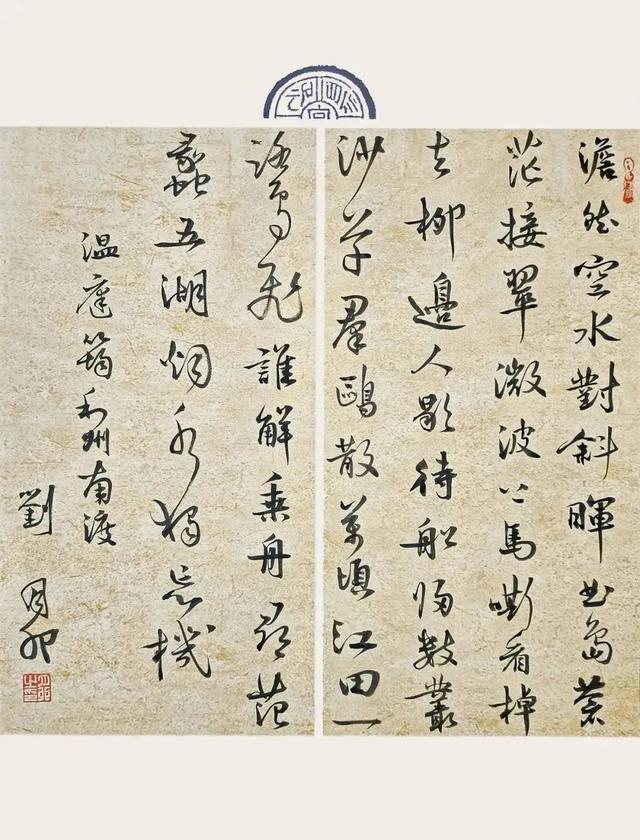 澹然空水對斜暉曲島蒼
茫接翠微波上馬嘶看棹
去柳邊人歇待船歸數叢
沙草羣鷗散萬頃江田一
鷺飛誰解乘舟尋范
蠡五湖烟水獨忘機
温庭筠利州南渡
劉